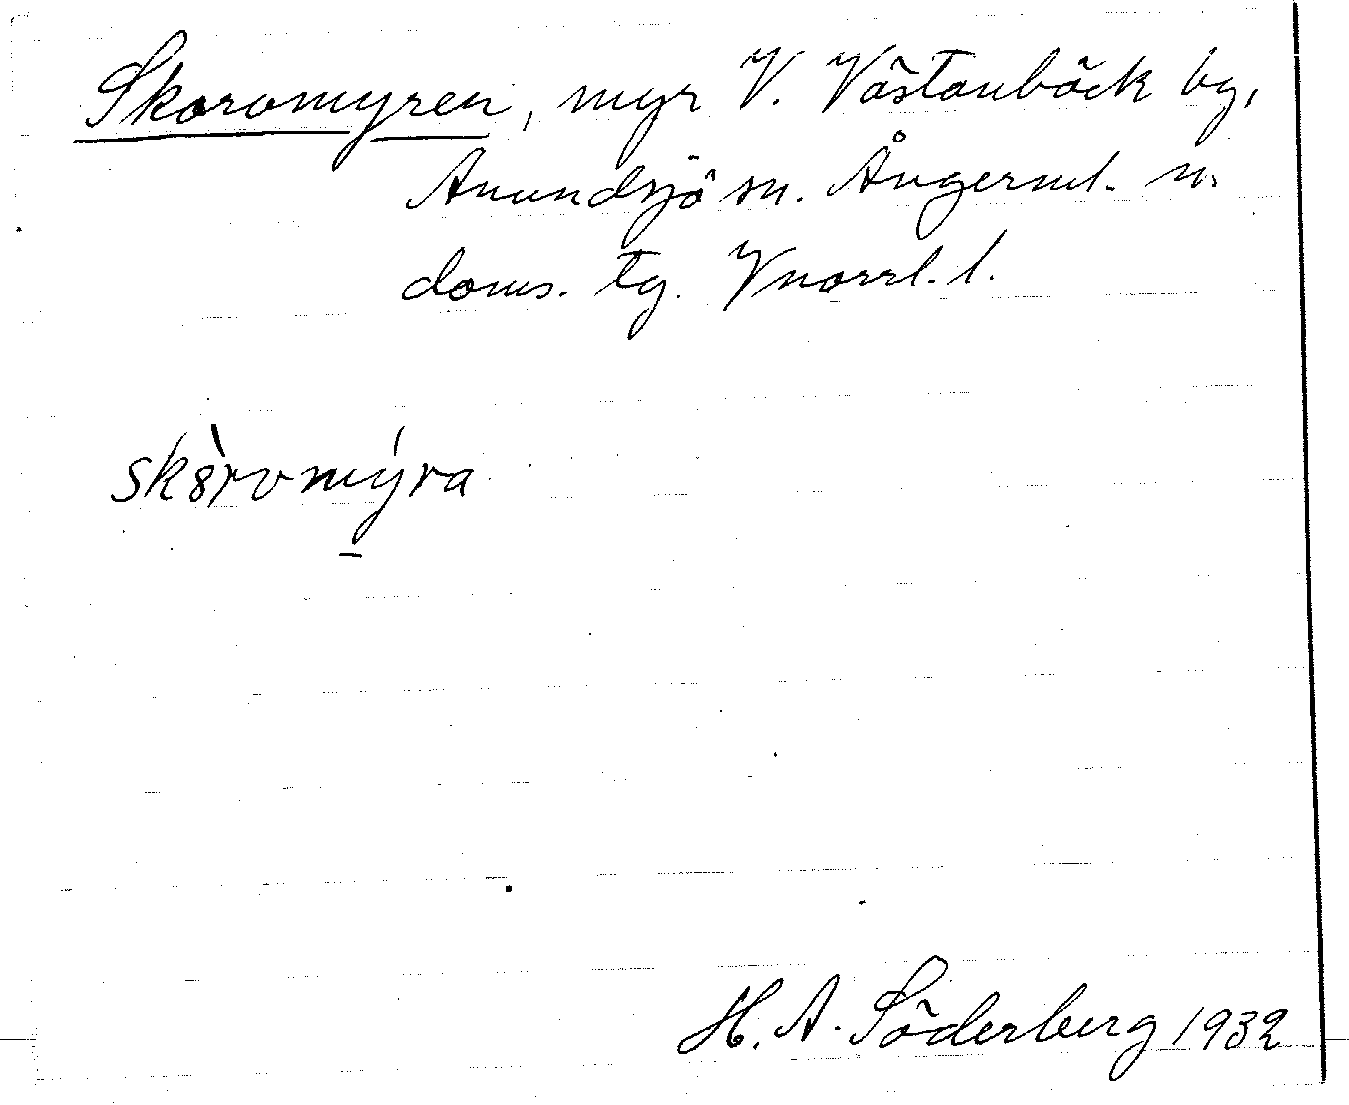 Skoromyren, myr V. Västanbäck by,
Anundsjö sn. Ångerml. n.
doms. tg. Vnorrl. l.
sk8̀romýra
H. A. Söderberg 1932